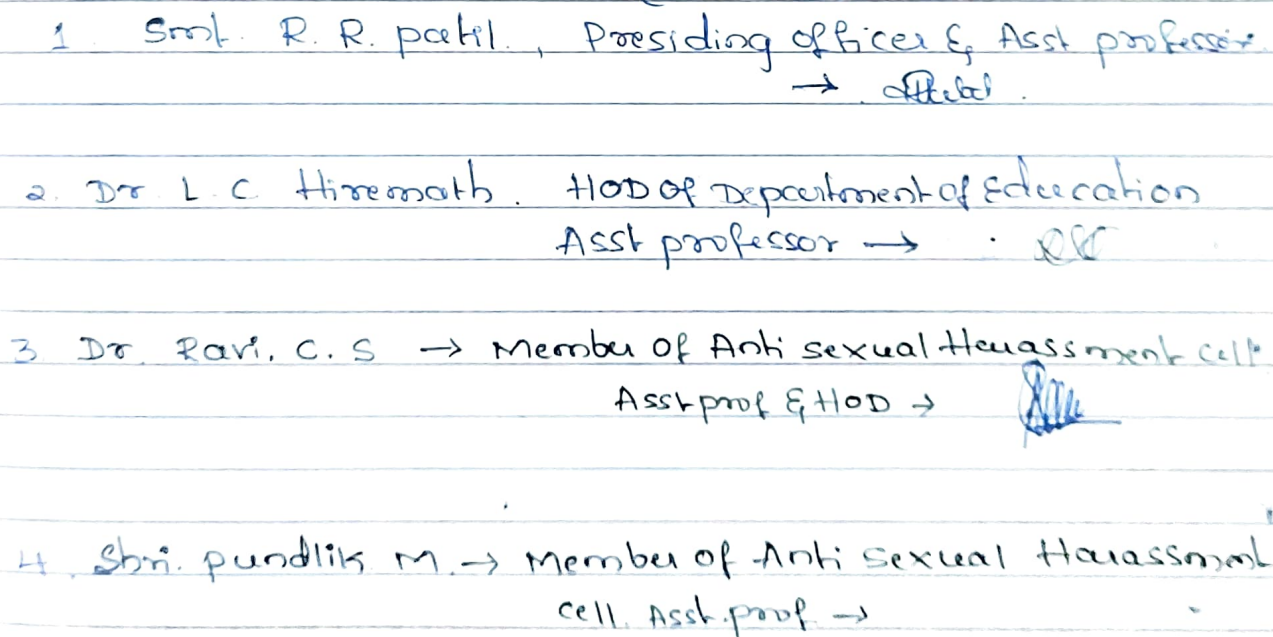 1 Smt. R. R. patil., Presiding officer & Asst professor
→
2. Dr L. C. Hiremath. HOD Of Department of Education
Asst professor →
3 Dr. Ravi. C. S → Member Of Anti sexual Harassment cell
Asst prof & HOD →
4. Shri. pundlik M. → Member of Anti Sexual Harassment
cell. Asst. prof →